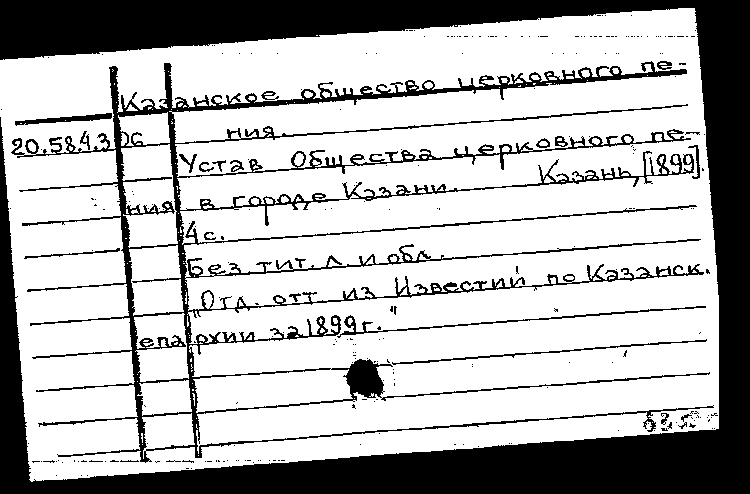 Казанское общество церковного пе-
20.58.4.306 ния.
Устав Общества церковного пе-
ния в городе Казани. Казань, [1899].
4 с.
Без тит. л. и обл.
„Отд. отт. из Известий по Казанск.
епархии за 1899 г."